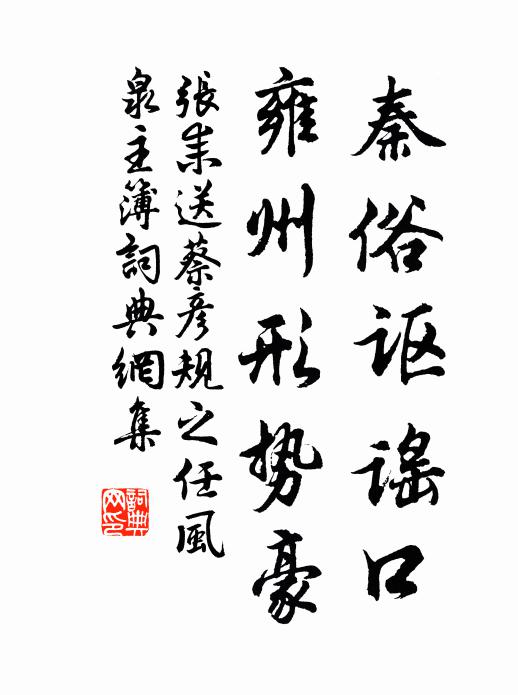 秦俗讴谣口
雍州形势豪
張耒送蔡彦規之任風
泉主簿詞典網集
詞典网印